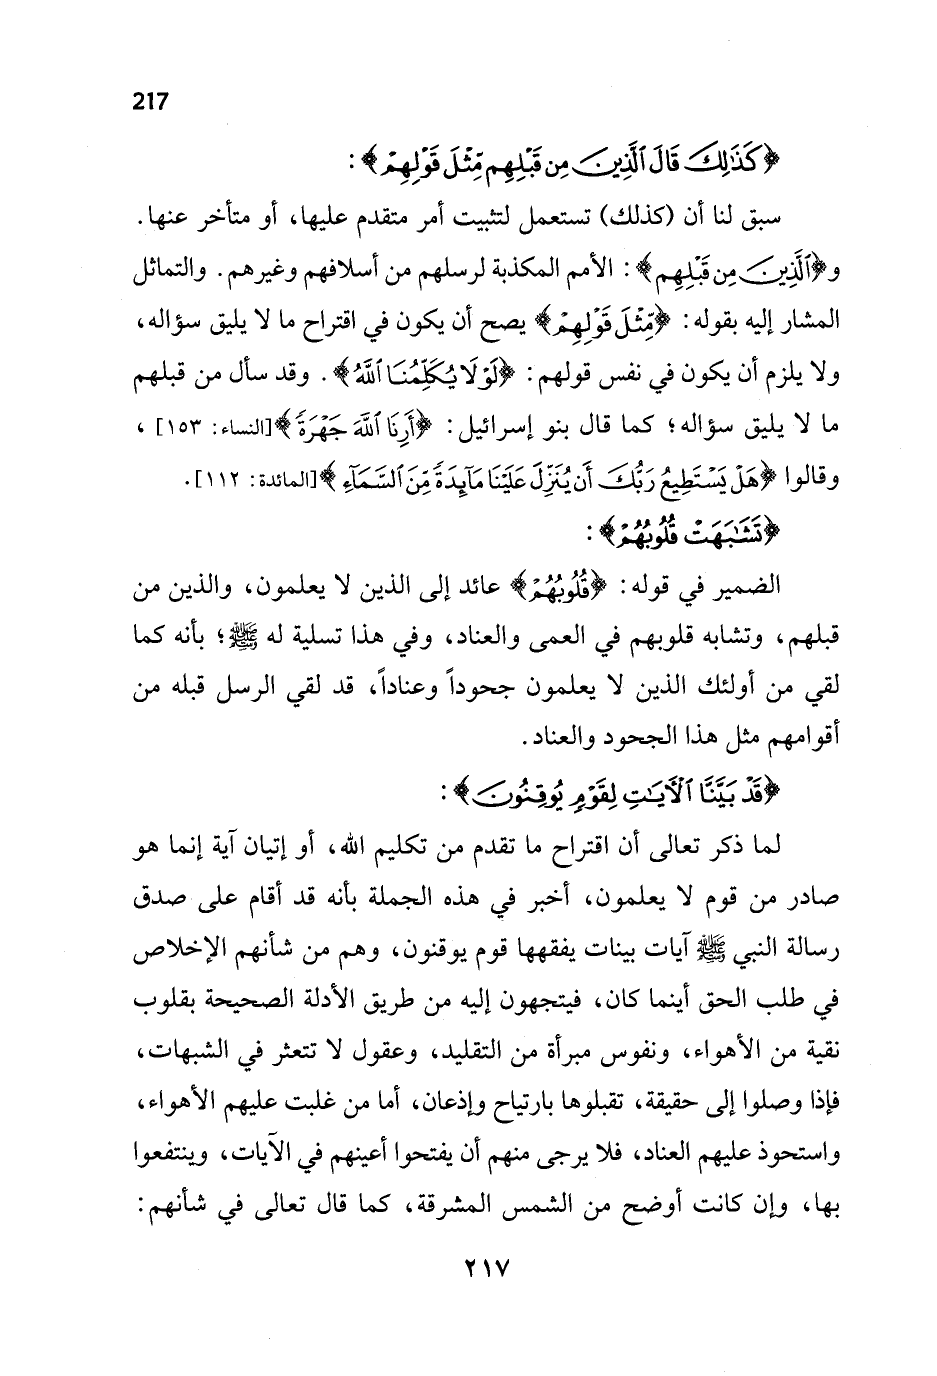 217
﴿كَذَٰلِكَ قَالَ ٱلَّذِينَ مِن قَبْلِهِم مِّثْلَ قَوْلِهِمْ﴾ :
سبق لنا أن (كذلك) تستعمل لتثبيت أمر متقدم عليها، أو متأخر عنها.
و﴿ٱلَّذِينَ مِن قَبْلِهِم﴾ : الأمم المكذبة لرسلهم من أسلافهم وغيرهم. والتماثل
المشار إليه بقوله: ﴿مِّثْلَ قَوْلِهِمْ﴾ يصح أن يكون في اقتراح ما لا يليق سؤاله،
ولا يلزم أن يكون في نفس قولهم: ﴿لَوْلَا يُكَلِّمُنَا ٱللَّهُ﴾. وقد سأل من قبلهم
ما لا يليق سؤاله؛ كما قال بنو إسرائيل: ﴿أَرِنَا ٱللَّهَ جَهْرَةً﴾ [النساء: ١٥٣] ،
وقالوا ﴿هَلْ يَسْتَطِيعُ رَبُّكَ أَن يُنَزِّلَ عَلَيْنَا مَآئِدَةً مِّنَ ٱلسَّمَآءِ﴾ [المائدة: ١١٢].
﴿تَشَٰبَهَتْ قُلُوبُهُمْ﴾ :
الضمير في قوله: ﴿قُلُوبُهُمْ﴾ عائد إلى الذين لا يعلمون، والذين من
قبلهم، وتشابه قلوبهم في العمى والعناد، وفي هذا تسلية له ﷺ؛ بأنه كما
لقي من أولئك الذين لا يعلمون جحوداً وعناداً، قد لقي الرسل قبله من
أقوامهم مثل هذا الجحود والعناد.
﴿قَدْ بَيَّنَّا ٱلْآيَٰتِ لِقَوْمٍ يُوقِنُونَ﴾ :
لما ذكر تعالى أن اقتراح ما تقدم من تكليم الله، أو إتيان آية إنما هو
صادر من قوم لا يعلمون، أخبر في هذه الجملة بأنه قد أقام على صدق
رسالة النبي ﷺ آيات بينات يفقهها قوم يوقنون، وهم من شأنهم الإخلاص
في طلب الحق أينما كان، فيتجهون إليه من طريق الأدلة الصحيحة بقلوب
نقية من الأهواء، ونفوس مبرأة من التقليد، وعقول لا تتعثر في الشبهات،
فإذا وصلوا إلى حقيقة، تقبلوها بارتياح وإذعان، أما من غلبت عليهم الأهواء،
واستحوذ عليهم العناد، فلا يرجى منهم أن يفتحوا أعينهم في الآيات، وينتفعوا
بها، وإن كانت أوضح من الشمس المشرقة، كما قال تعالى في شأنهم:
٢١٧